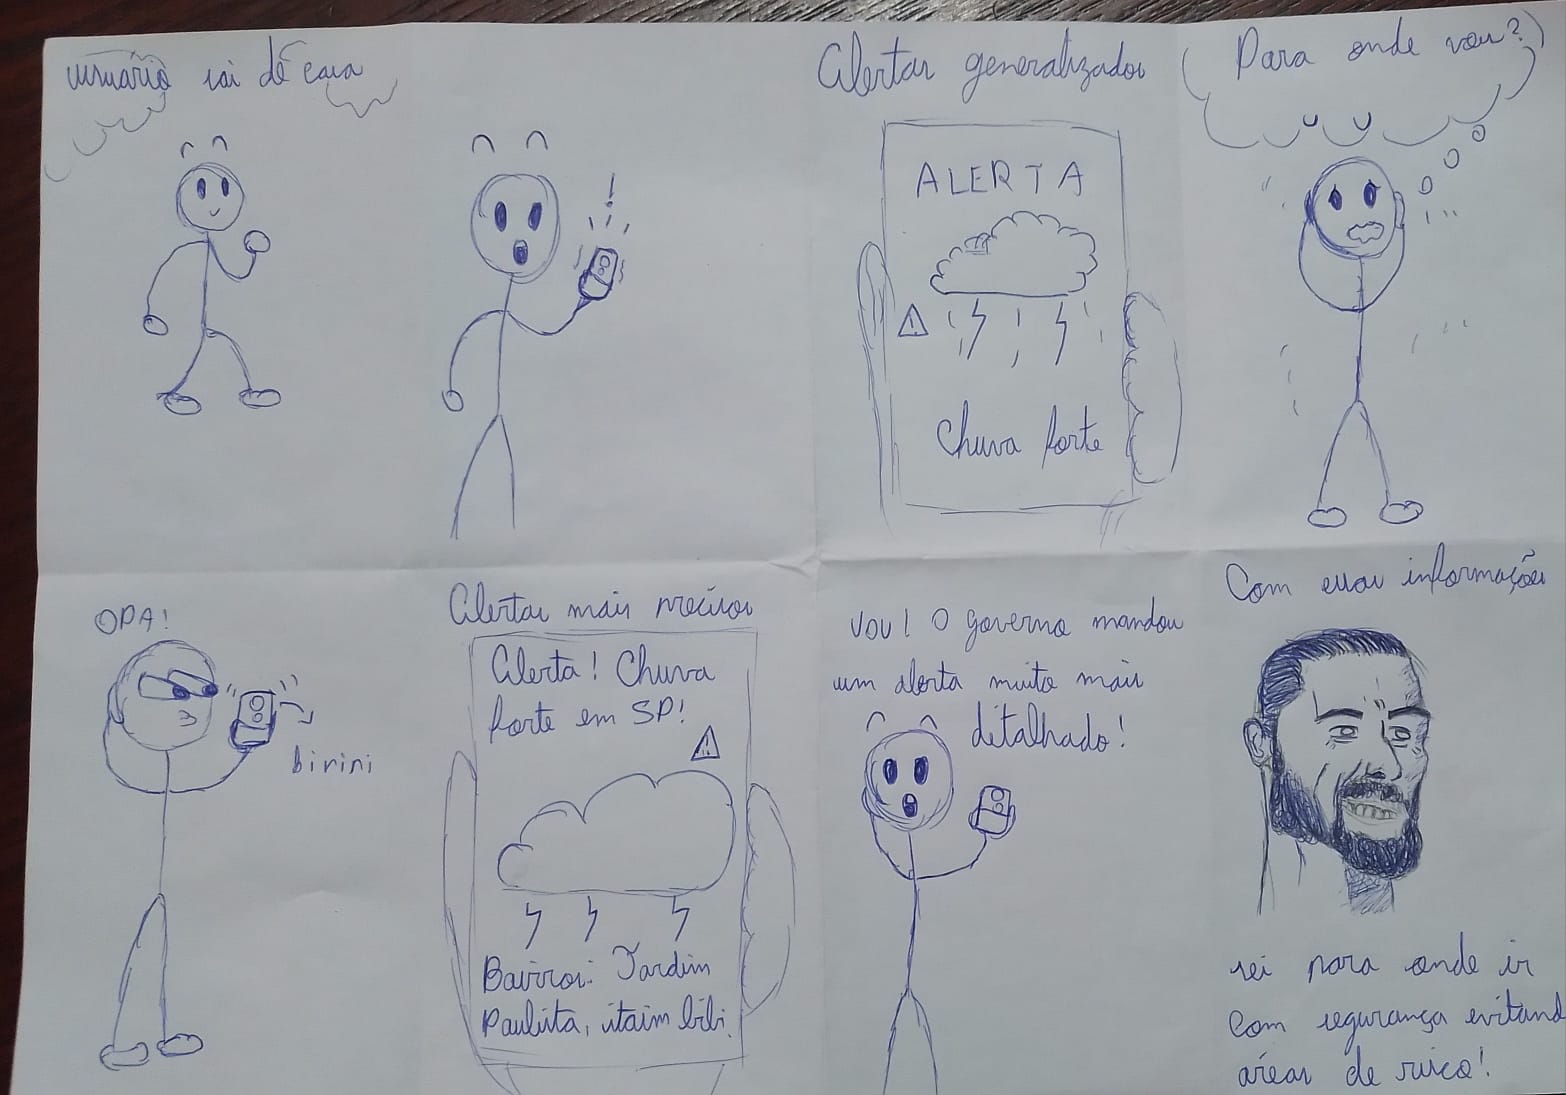 usuário sai de casa
!
Alertas generalizados
ALERTA
Chuva forte
Para onde vou?
OPA!
birini
Alertas mais precisos
Alerta! Chuva
forte em SP!
Bairros: Jardim
Paulista, itaim bibi.
VOU! O governo mandou
um alerta muito mais
ditalhado!
Com essas informações
sei para onde ir
com segurança evitand
áreas de risco!